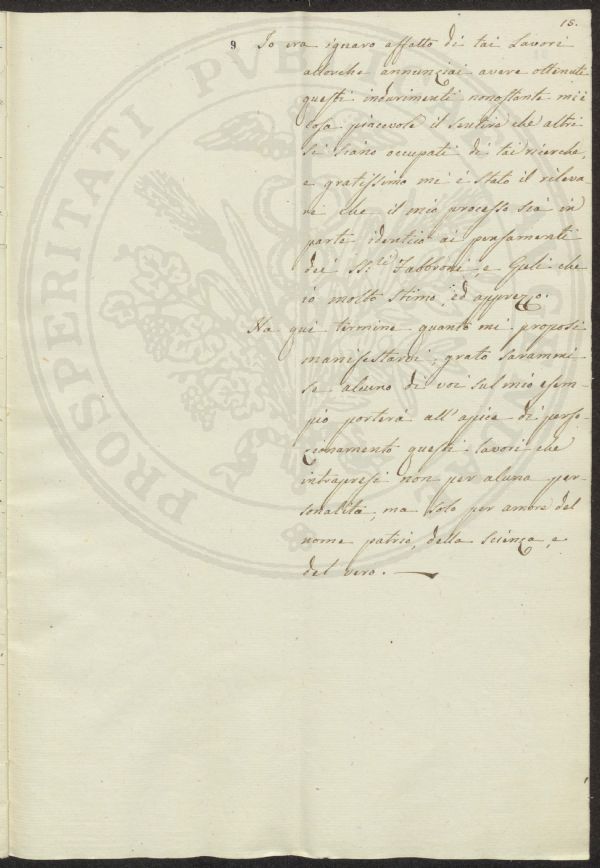 15.
9 Io era ignaro affatto di tai Lavori
allorche annunziai avere ottenuti
questi indurimenti nonostante mi è
cosa piacevole il sentire che altri
si siano occupati di tai ricerche,
e gratissimo mi è stato il rileva
re che il mio processo sia in
parte identico ai pensamenti
dei SS.ri Fabbroni, e Gueli che
io molto stimo, ed apprezzo.
Ha qui termine quanto mi proposi
manifestarvi, grato sarammi
se alcuno di voi sul mio esem-
pio porterà all'apice di perfe-
zionamento questi lavori che
intrapresi non per alcuna per-
sonalità, ma solo per amore del
nome patrio, della scienza, e
del vero.
PROSPERITATI PUBLICAE